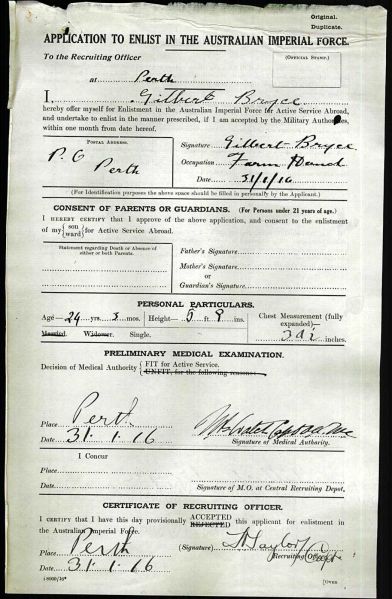 Original.
Duplicate.
APPLICATION TO ENLIST IN THE AUSTRALIAN IMPERIAL FORCE.
To the Recruiting Officer
(OFFICIAL STAMP.)
at Perth
I, Gilbert Bryce
hereby offer myself for Enlistment in the Australian Imperial Force for Active Service Abroad,
and undertake to enlist in the manner prescribed, if I am accepted by the Military Authorities,
within one month from date hereof.
POSTAL ADDRESS.
P. O
Perth
Signature Gilbert Bryce
Occupation Farm Hand
Date 31/1/16
(For Identification purposes the above space should be filled in personally by the Applicant.)
CONSENT OF PARENTS OR GUARDIANS. (For Persons under 21 years of age.)
I HEREBY CERTIFY that I approve of the above application, and consent to the enlistment
of my {son ward} for Active Service Abroad.
Statement regarding Death or Absence of
either or both Parents.
Father's Signature
Mother's Signature
or
Guardian's Signature
PERSONAL PARTICULARS.
Age—24 yrs. 3 mos. Height—5 ft. 8 ins.
Chest Measurement (fully
expanded)—
inches.
Married. Widower. Single.
PRELIMINARY MEDICAL EXAMINATION.
Decision of Medical Authority {FIT for Active Service.
UNFIT, for the following reasons:
Place Perth
Date 31.1.16
Signature of Medical Authority.
I Concur
Place
Date
Signature of M.O. at Central Recruiting Depot.
CERTIFICATE OF RECRUITING OFFICER.
I CERTIFY that I have this day provisionally ACCEPTED REJECTED this applicant for enlistment in
the Australian Imperial Force.
Place Perth
(Signature) Taylor Capt
Recruiting Officer.
Date 31.1.16
[OVER